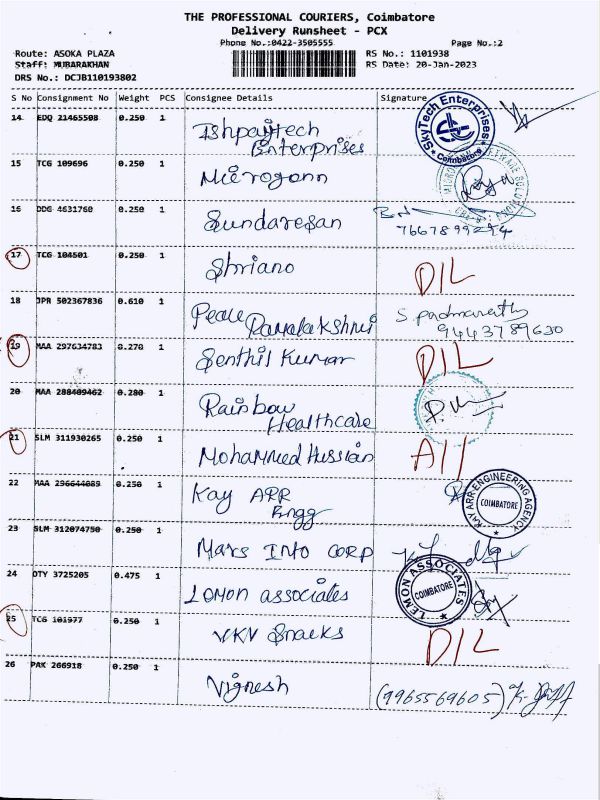 THE PROFESSIONAL COURIERS, Coimbatore
Delivery Runsheet - PCX
Phone No.:0422-3505555 Page No.:2
Route: ASOKA PLAZA RS No.: 1101938
Staff: MUBARAKHAN RS Date: 20-Jan-2023
DRS No.: DCJB110193802
S No Consignment No Weight PCS Consignee Details Signature
14 EDQ 21465508 0.250 1 Ishpaytech SkyTech Enterprises Coimbatore
Enterprises
15 TCG 109696 0.250 1 Microgenn
16 DDG 4631760 0.250 1 Sundaresan
7667899294
17 TCG 104501 0.250 1 Shriano D/L
18 JPR 502367836 0.610 1 S. Padmavathy
9443789630
19 MAA 297634783 0.270 1 Senthil Kumar D/L
20 MAA 288409462 0.280 1 Rainbow
Healthcare
21 SLM 311930265 0.250 1 Mohammed Hussian A//
22 MAA 296644089 0.250 1 Kay ARR KAY ARR ENGINEERING AGENCY COIMBATORE
Engg
23 SLM 312074750 0.250 1 Mars Info CORP
24 OTY 3725205 0.475 1 Lemon associates LEMON ASSOCIATES COIMBATORE
25 TCG 101977 0.250 1 VKV Snacks D/L
26 PAK 266918 0.250 1 Vignesh (9965569605)